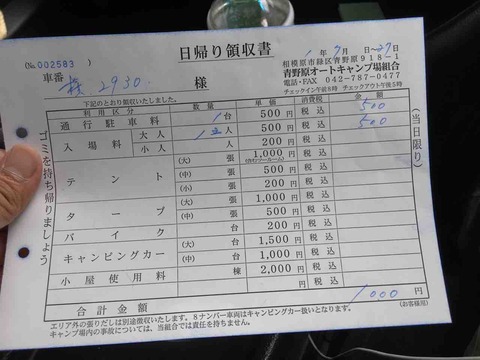 日帰り領収書
(No.002583)
車番
2930
様
1年7月 日〜27日
相模原市緑区青野原918-1
青野原オートキャンプ場組合
電話・FAX 042-787-0477
チェックイン午前8時 チェックアウト午後5時
下記のとおり領収いたしました。
利用区分 数量 単価 消費税 金額
通行駐車料 1台 500円 税込 500
入場料 大人 1人 500円 税込 500
小人 人 200円 税込
テント (大) 張 1,000円 税込
(中) 張 500円 税込
(小) 張 200円 税込
タープ (大) 張 1,000円 税込
(中) 張 500円 税込
バイク 台 200円 税込
キャンピングカー (大) 台 1,500円 税込
(中) 台 1,000円 税込
小屋使用料 棟 2,000円 税込
合計金額 1000円
(お客様用)
エリア外の張りだしは別途徴収いたします。8ナンバー車両はキャンピングカー扱いとなります。
キャンプ場内の事故については、当組合では責任を持ちません。
ゴミを持ち帰りましょう
(当日限り)